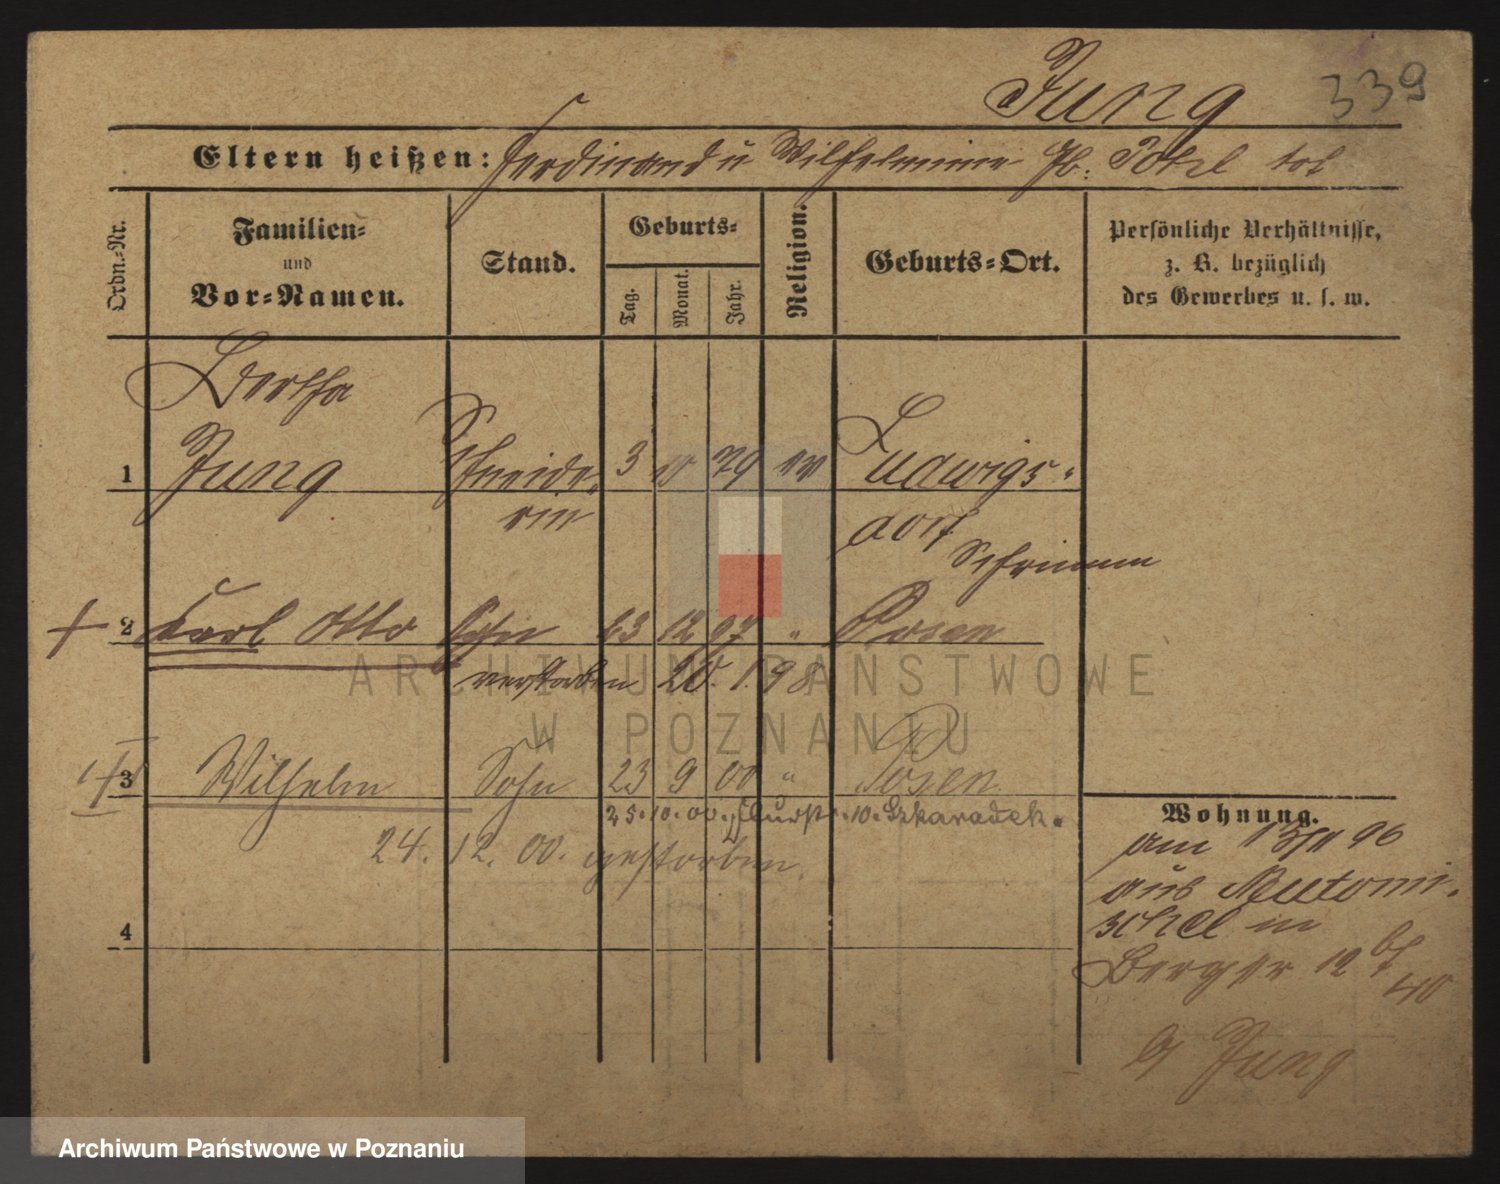 Jung 339
Eltern heißen: Ferdinand u Wilhelmine gb. tot
Ordn.-Nr.
Familien-
und
Vor-Namen.
Stand.
Geburts-
Tag.
Monat.
Jahr.
Religion.
Geburts-Ort.
Persönliche Verhältnisse,
z. B. bezüglich
des Gewerbes u. s. w.
Bertha
1 Jung Schneide- 3 10 79 ev Ludwigs-
rin dorf
Schrimm
2 Karl Otto Sohn 12 97 " Posen
verstorben 20. 1. 98
ARCHIWUM PAŃSTWOWE
W POZNANIU
3 Wilhelm Sohn 23 9 00 " Posen
25. 10. 00. 10. Szkaradek.
24. 12. 00. gestorben.
4
Wohnung.
am 96
aus Neutomi-
schel in
Berger 12
Jung
Archiwum Państwowe w Poznaniu